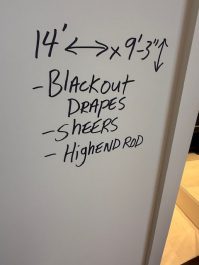 14' ↔ x 9'-3" ↕
- Blackout
DRAPES
- SHEERS
- HIGHEND ROD